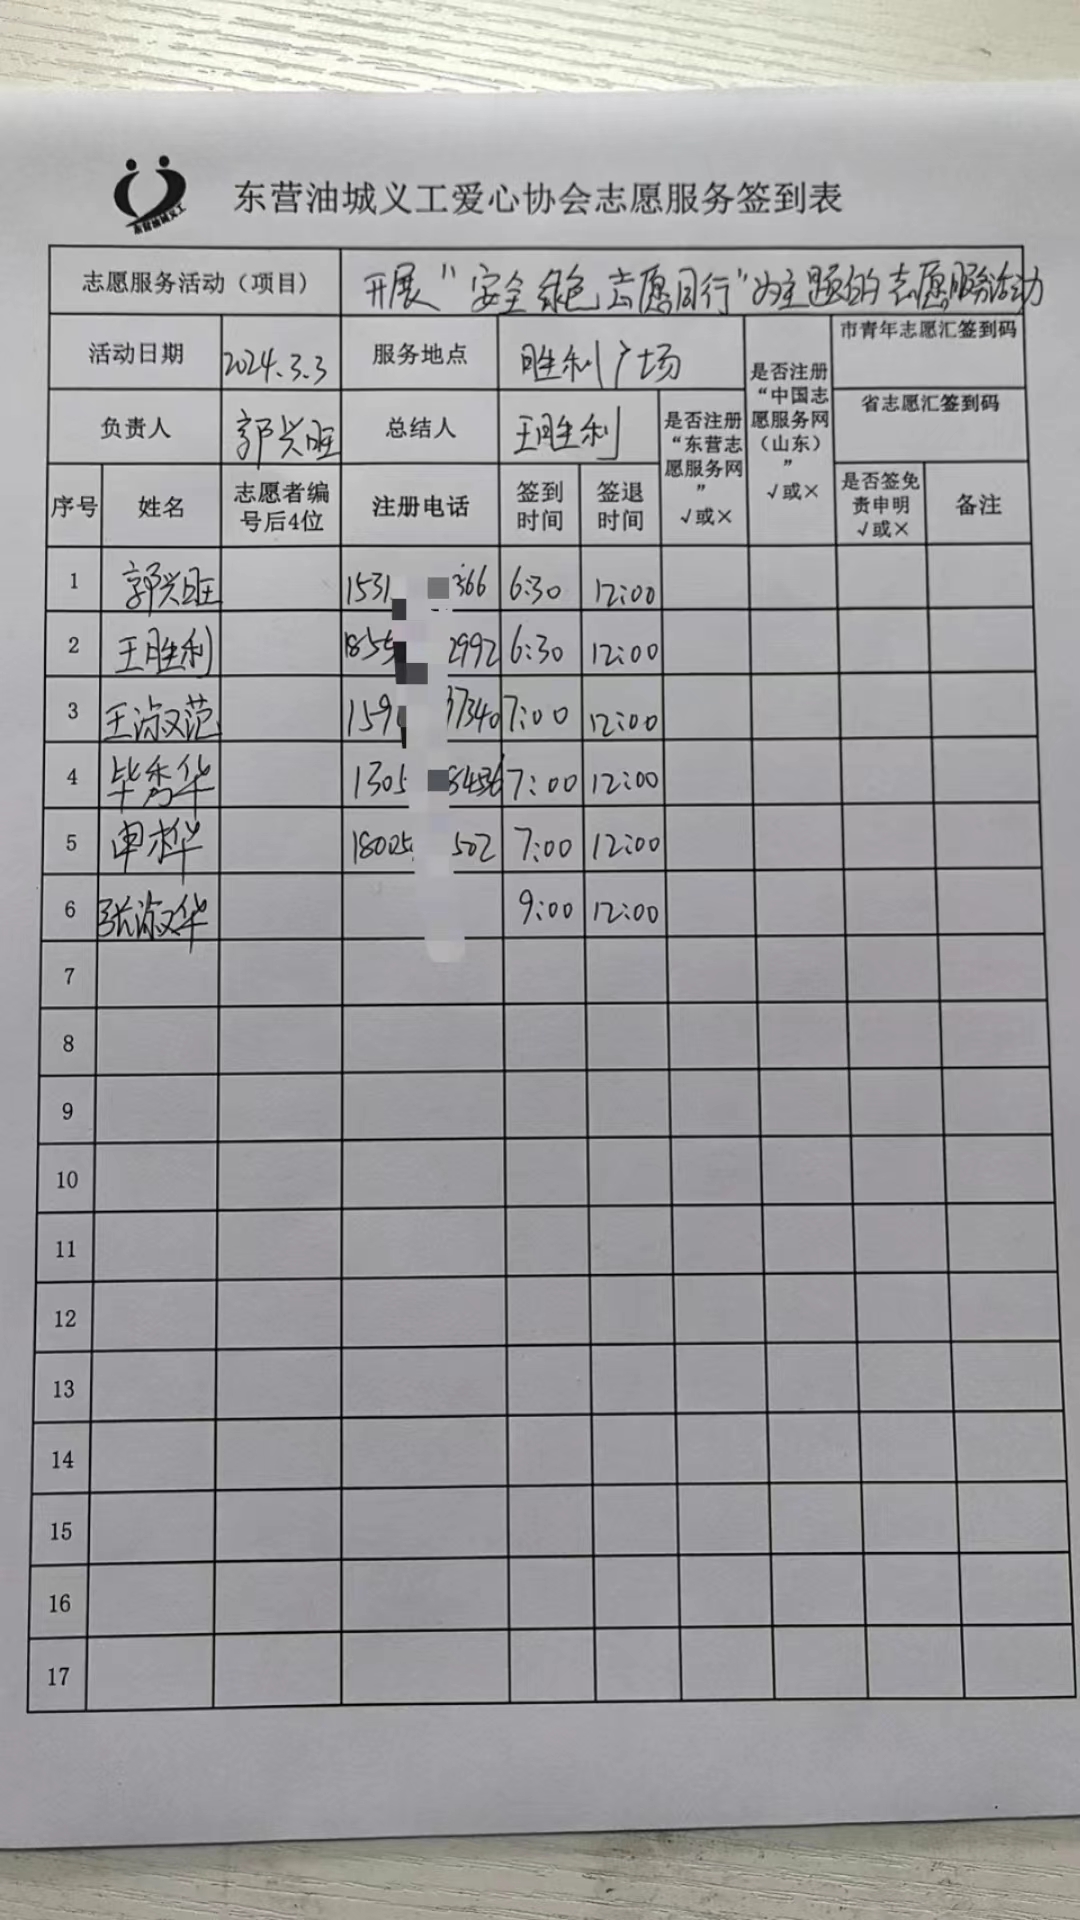 东营油城义工
东营油城义工爱心协会志愿服务签到表
志愿服务活动（项目） 开展“安全绿色 志愿同行”为主题的志愿服务活动
活动日期 2024.3.3 服务地点 胜利广场 是否注册“中国志愿服务网（山东）” √或× 市青年志愿汇签到码
负责人 郭兴旺 总结人 王胜利 是否注册“东营志愿服务网” √或× 省志愿汇签到码
序号 姓名 志愿者编号后4位 注册电话 签到时间 签退时间 是否签免责申明 √或× 备注
1 郭兴旺 1531 366 6:30 12:00
2 王胜利 1855 2992 6:30 12:00
3 王淑范 159 37340 7:00 12:00
4 毕秀华 1305 8456 7:00 12:00
5 申桦 18025 502 7:00 12:00
6 张淑华 9:00 12:00
7
8
9
10
11
12
13
14
15
16
17